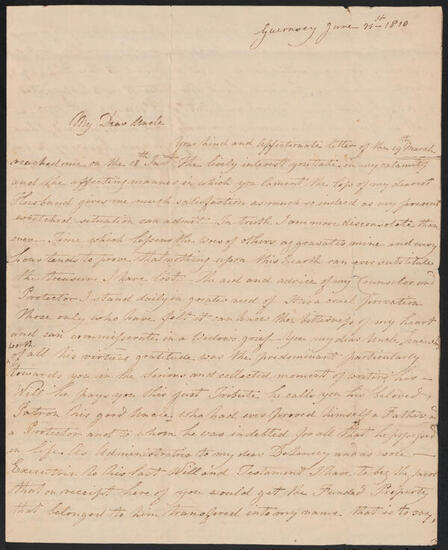 Guernsey June 21st 1810
My Dear Uncle
Your kind and affectionate letter of the 19th March
reached me on the 18th Inst. The lively interest you take in my calamity
and the affecting manner in which you lament the loss of my dearest
Husband gives me much satisfaction as much so indeed as my present
wretched situation can admit. In truth I am more disconsolate than
ever. Time which lessens the woes of others aggravates mine and every
hour tends to prove that nothing upon this Earth can ever substitute
the treasure I have lost. The aid and advice of my Counselor and
Protector I stand daily in greater need of. It is a cruel privation
Those only who have felt it can know the bitterness of my heart
and can commiserate in a Widow's grief. You my dear Uncle knew the
worth of all his virtues gratitude was the predominant particularly
towards you in the serious and collected moment of writing his
Will he pays you this just Tribute he calls you his beloved
Patron his good Uncle, who had ever proved himself a Father &
a Protector and to whom he was indebted for all that he possessed
in life. As Administratrix to my dear Delancey and as sole
Executrix to his last Will and Testament I have to beg the favor
that on receipt here of you would get the Funded Property
that belonged to him transferred into my name that is to say,